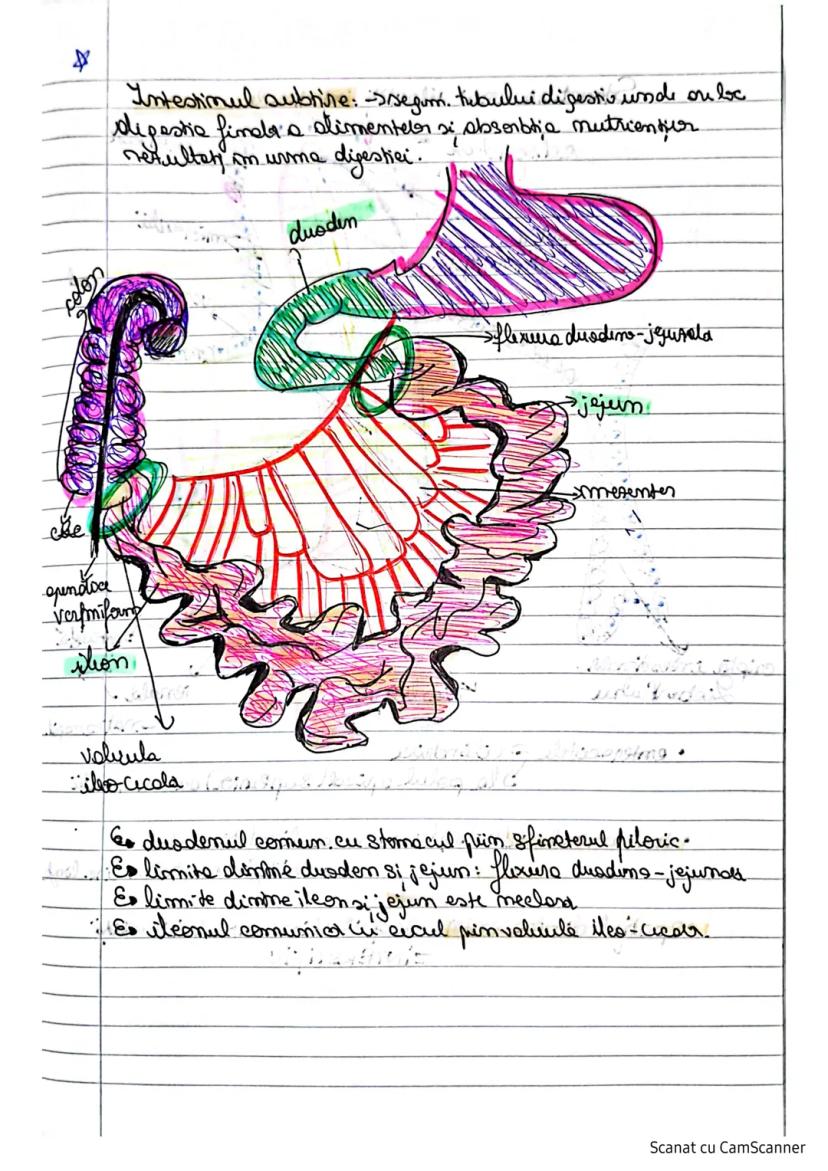 Intestinul subtire: → segm. tubului digestiv unde are loc
digestia finala a alimentelor si absorbtia nutrientilor
rezultați in urma digestiei.
duoden
colon
flexura duodeno-jejunala
jejun
mezenter
cec
apendice
vermiform
ileon
valvula
ileo-cecala
duodenul comun. cu stomacul prin sfincterul piloric.
limita dintre duoden si jejun: flexura duodeno-jejunala
limite dintre ileon si jejun este neclara
ileonul comunica cu cecul prin valvula ileo-cecala.
Scanat cu CamScanner